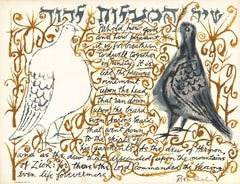 שיר המעלות לדוד
Behold, how good
and how pleasant
it is for brethren
to dwell together
in unity. It is
like the precious
ointment
upon the head
That ran down
upon the beard
even Aaron's beard
that went down
to the skirts of
his garments: As the dew of Hermon
and as the dew that descended upon the mountains
of Zion: for there the Lord Commanded the blessing
even life forevermore
Ben Shahn